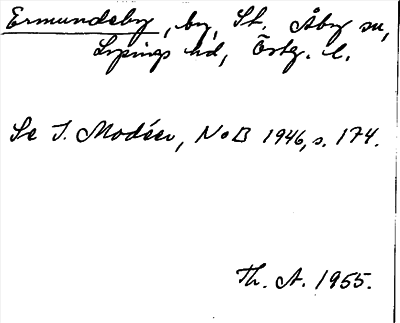 Ermundeby, by, St. Åby sn,
Lysings hd, Östg. l.
Se I. Modéer, NoB 1946, s. 174.
Th. A. 1955.